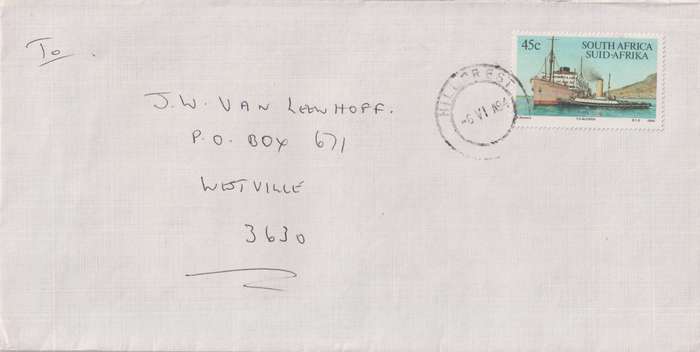 To
J.W. VAN LEEWHOFF.
P.O. BOX 671
WESTVILLE
3630
HILLCREST
-6 VI
45c
SOUTH AFRICA
SUID-AFRIKA